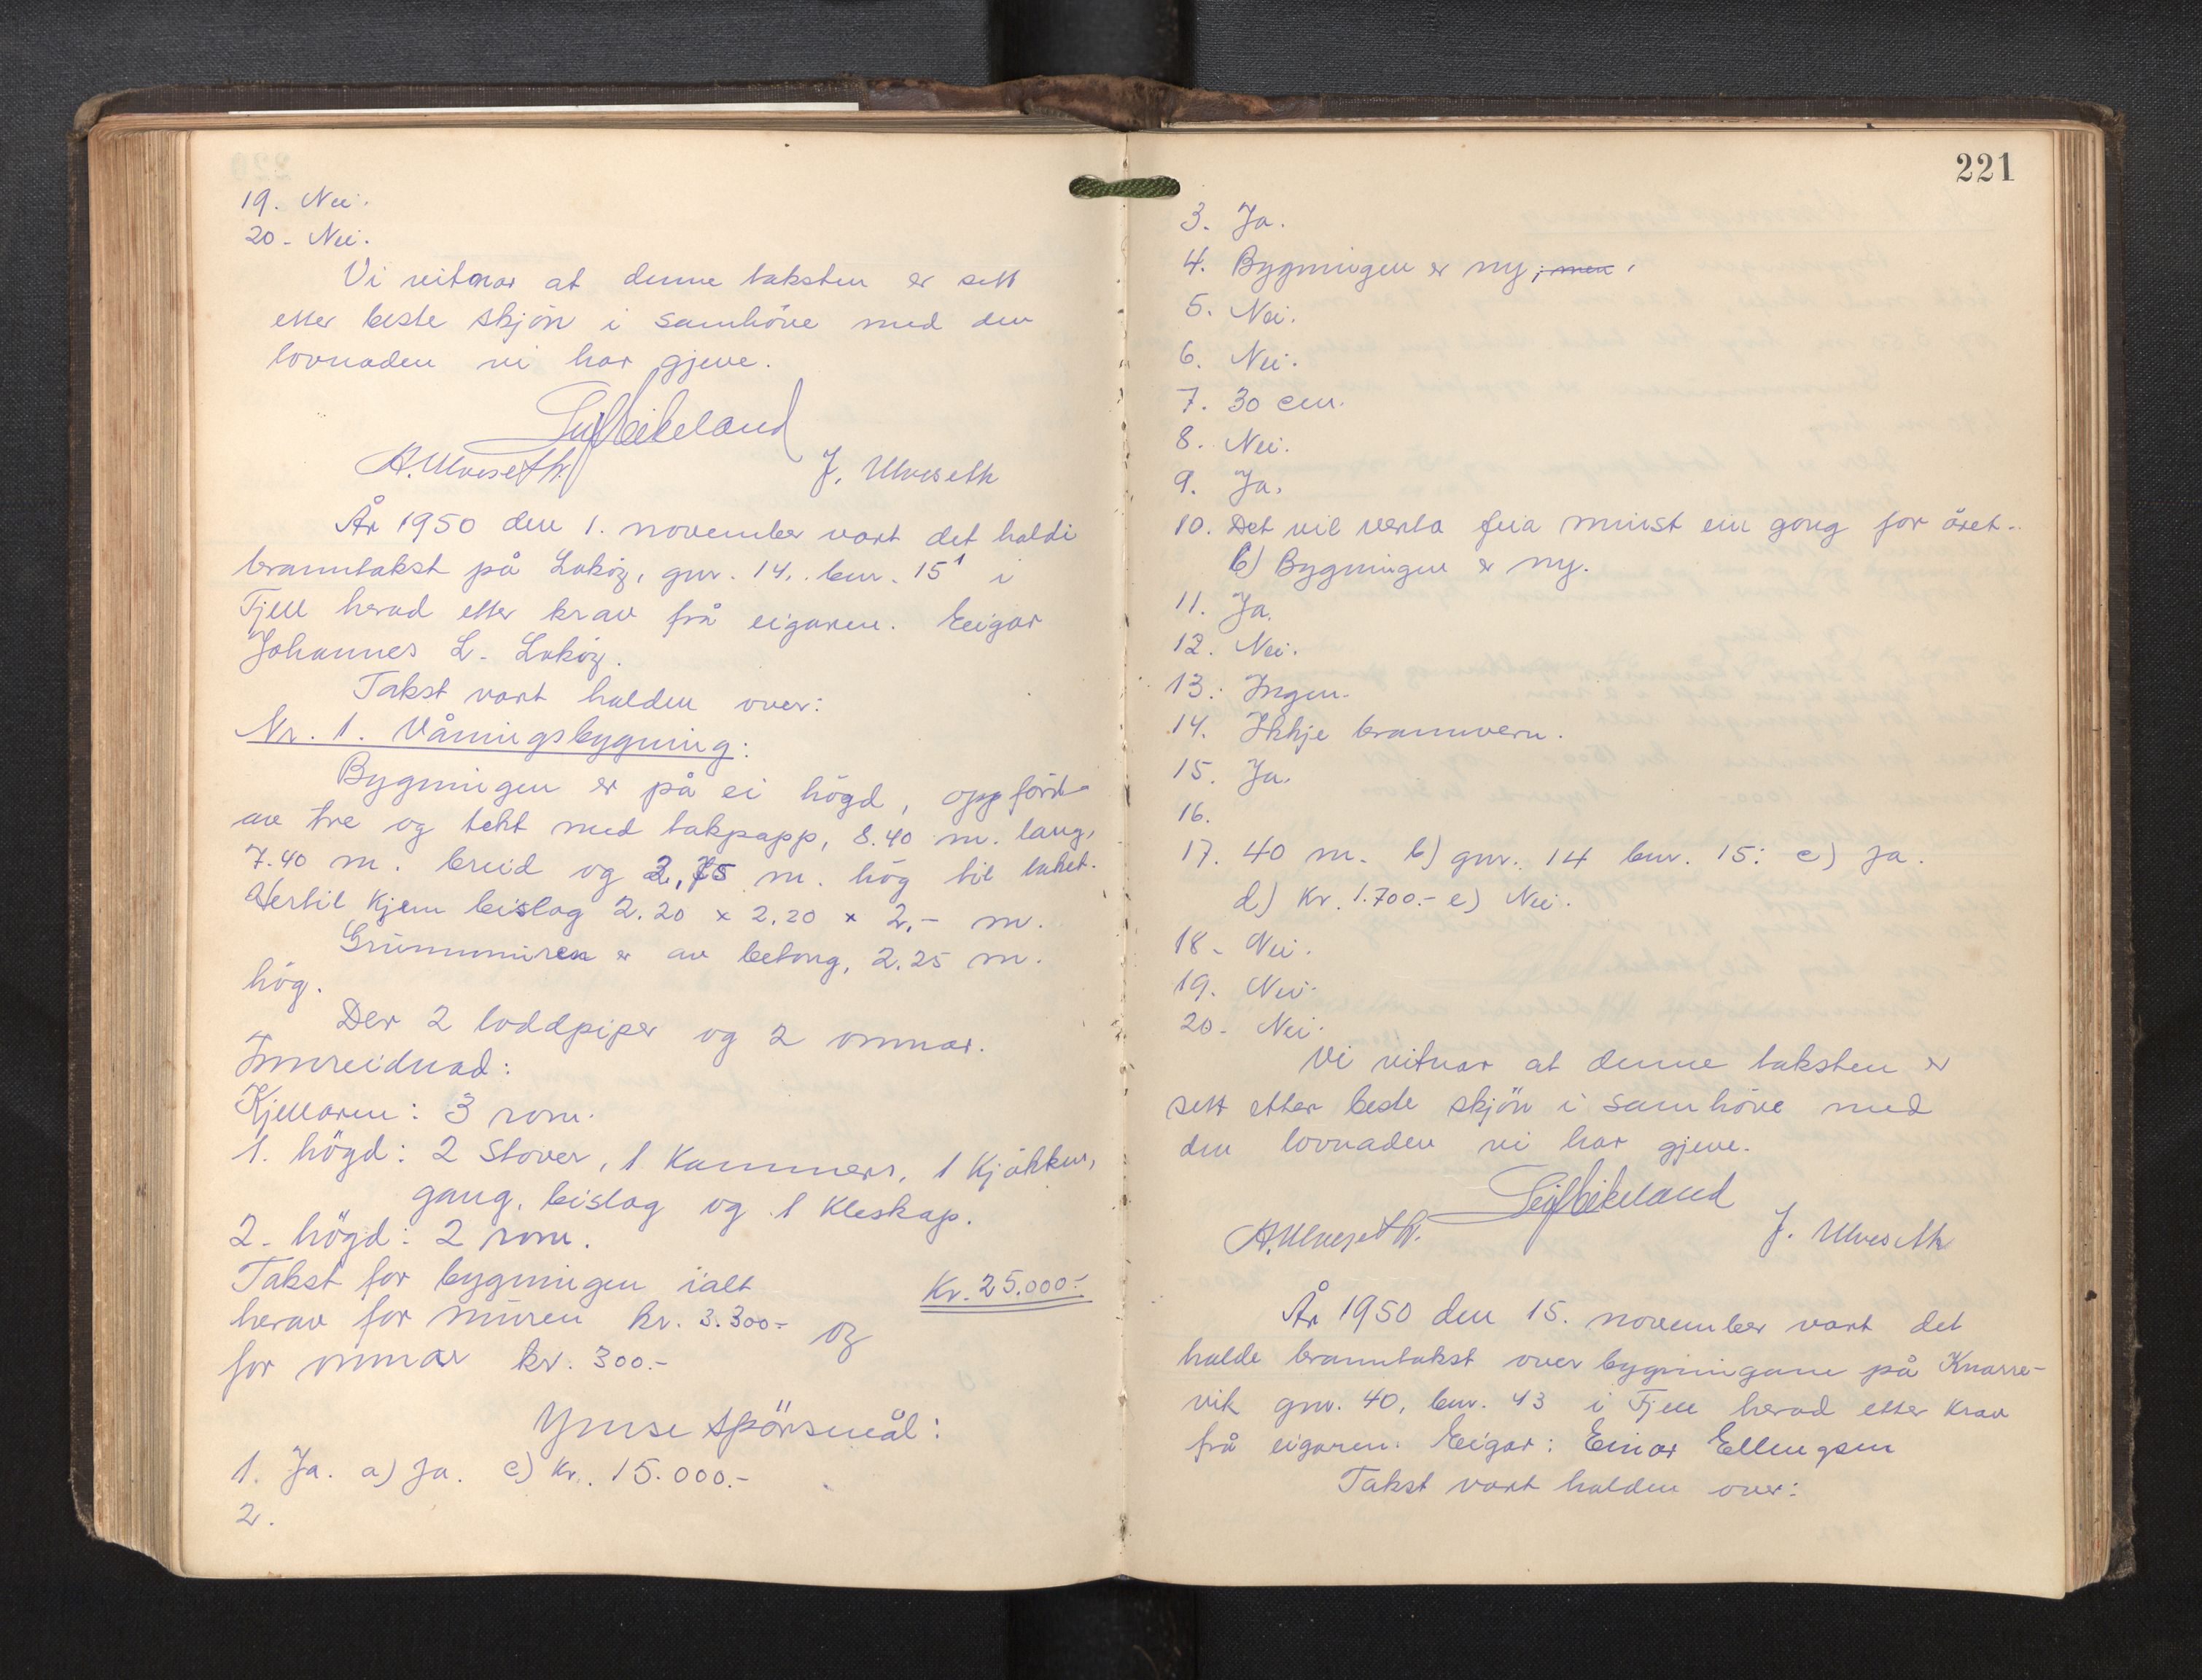 19. Nei.
20. Nei.
Vi vitnar at denne taksten er sett
etter beste skjön i samhöve med den
lovnaden vi har gjeve.
A. Ulveseth. J. Ulveseth
År 1950 den 1. november vart det haldi
branntakst på Loköy, gnr. 14, bnr. 15¹ i
Fjell herad etter krav frå eigaren. Eigar
Johannes L. Loköy.
Takst vart halden over:
Nr. 1. Våningsbygning:
Bygningen er på ei högd, oppförd
av tre og tekt med takpapp, 8.40 m. lang,
7.40 m. breid og 2,75 m. hög til taket.
Hertil kjem bislag 2.20 x 2.20 x 2,- m.
Grunnmuren er av betong, 2.25 m.
hög.
Der 2 loddpiper og 2 omnar.
Innreidnad:
Kjellaren: 3 rom.
1. högd: 2 Stover, 1 Kammers, 1 Kjökken,
gang, bislag og 1 Kleskap.
2. högd: 2 rom.
Takst for bygningen ialt Kr. 25.000.-
herav for muren kr. 3.300.- og
for omnar kr. 300.-
Ymse spörsmål:
1. Ja. a) Ja. c) Kr. 15.000.-
2.
221
3. Ja.
4. Bygningen er ny, men.
5. Nei.
6. Nei.
7. 30 cm.
8. Nei.
9. Ja.
10. Det vil verta feia minst ein gong for året.
b) Bygningen er ny.
11. Ja.
12. Nei.
13. Ingen.
14. Ikkje brannvern.
15. Ja.
16.
17. 40 m. b) gnr. 14 bnr. 15: c) Ja.
d) Kr. 1.700.- e) Nei.
18. Nei.
19. Nei.
20. Nei.
Vi vitnar at denne taksten er
sett etter beste skjön i samhöve med
den lovnaden vi har gjeve.
A. Ulveseth. J. Ulveseth
År 1950 den 15. november vart det
halde branntakst over bygningane på Knarre-
vik gnr. 40, bnr. 43 i Fjell herad etter krav
frå eigaren. Eigar: Einar Ellingsen
Takst vart halden over: